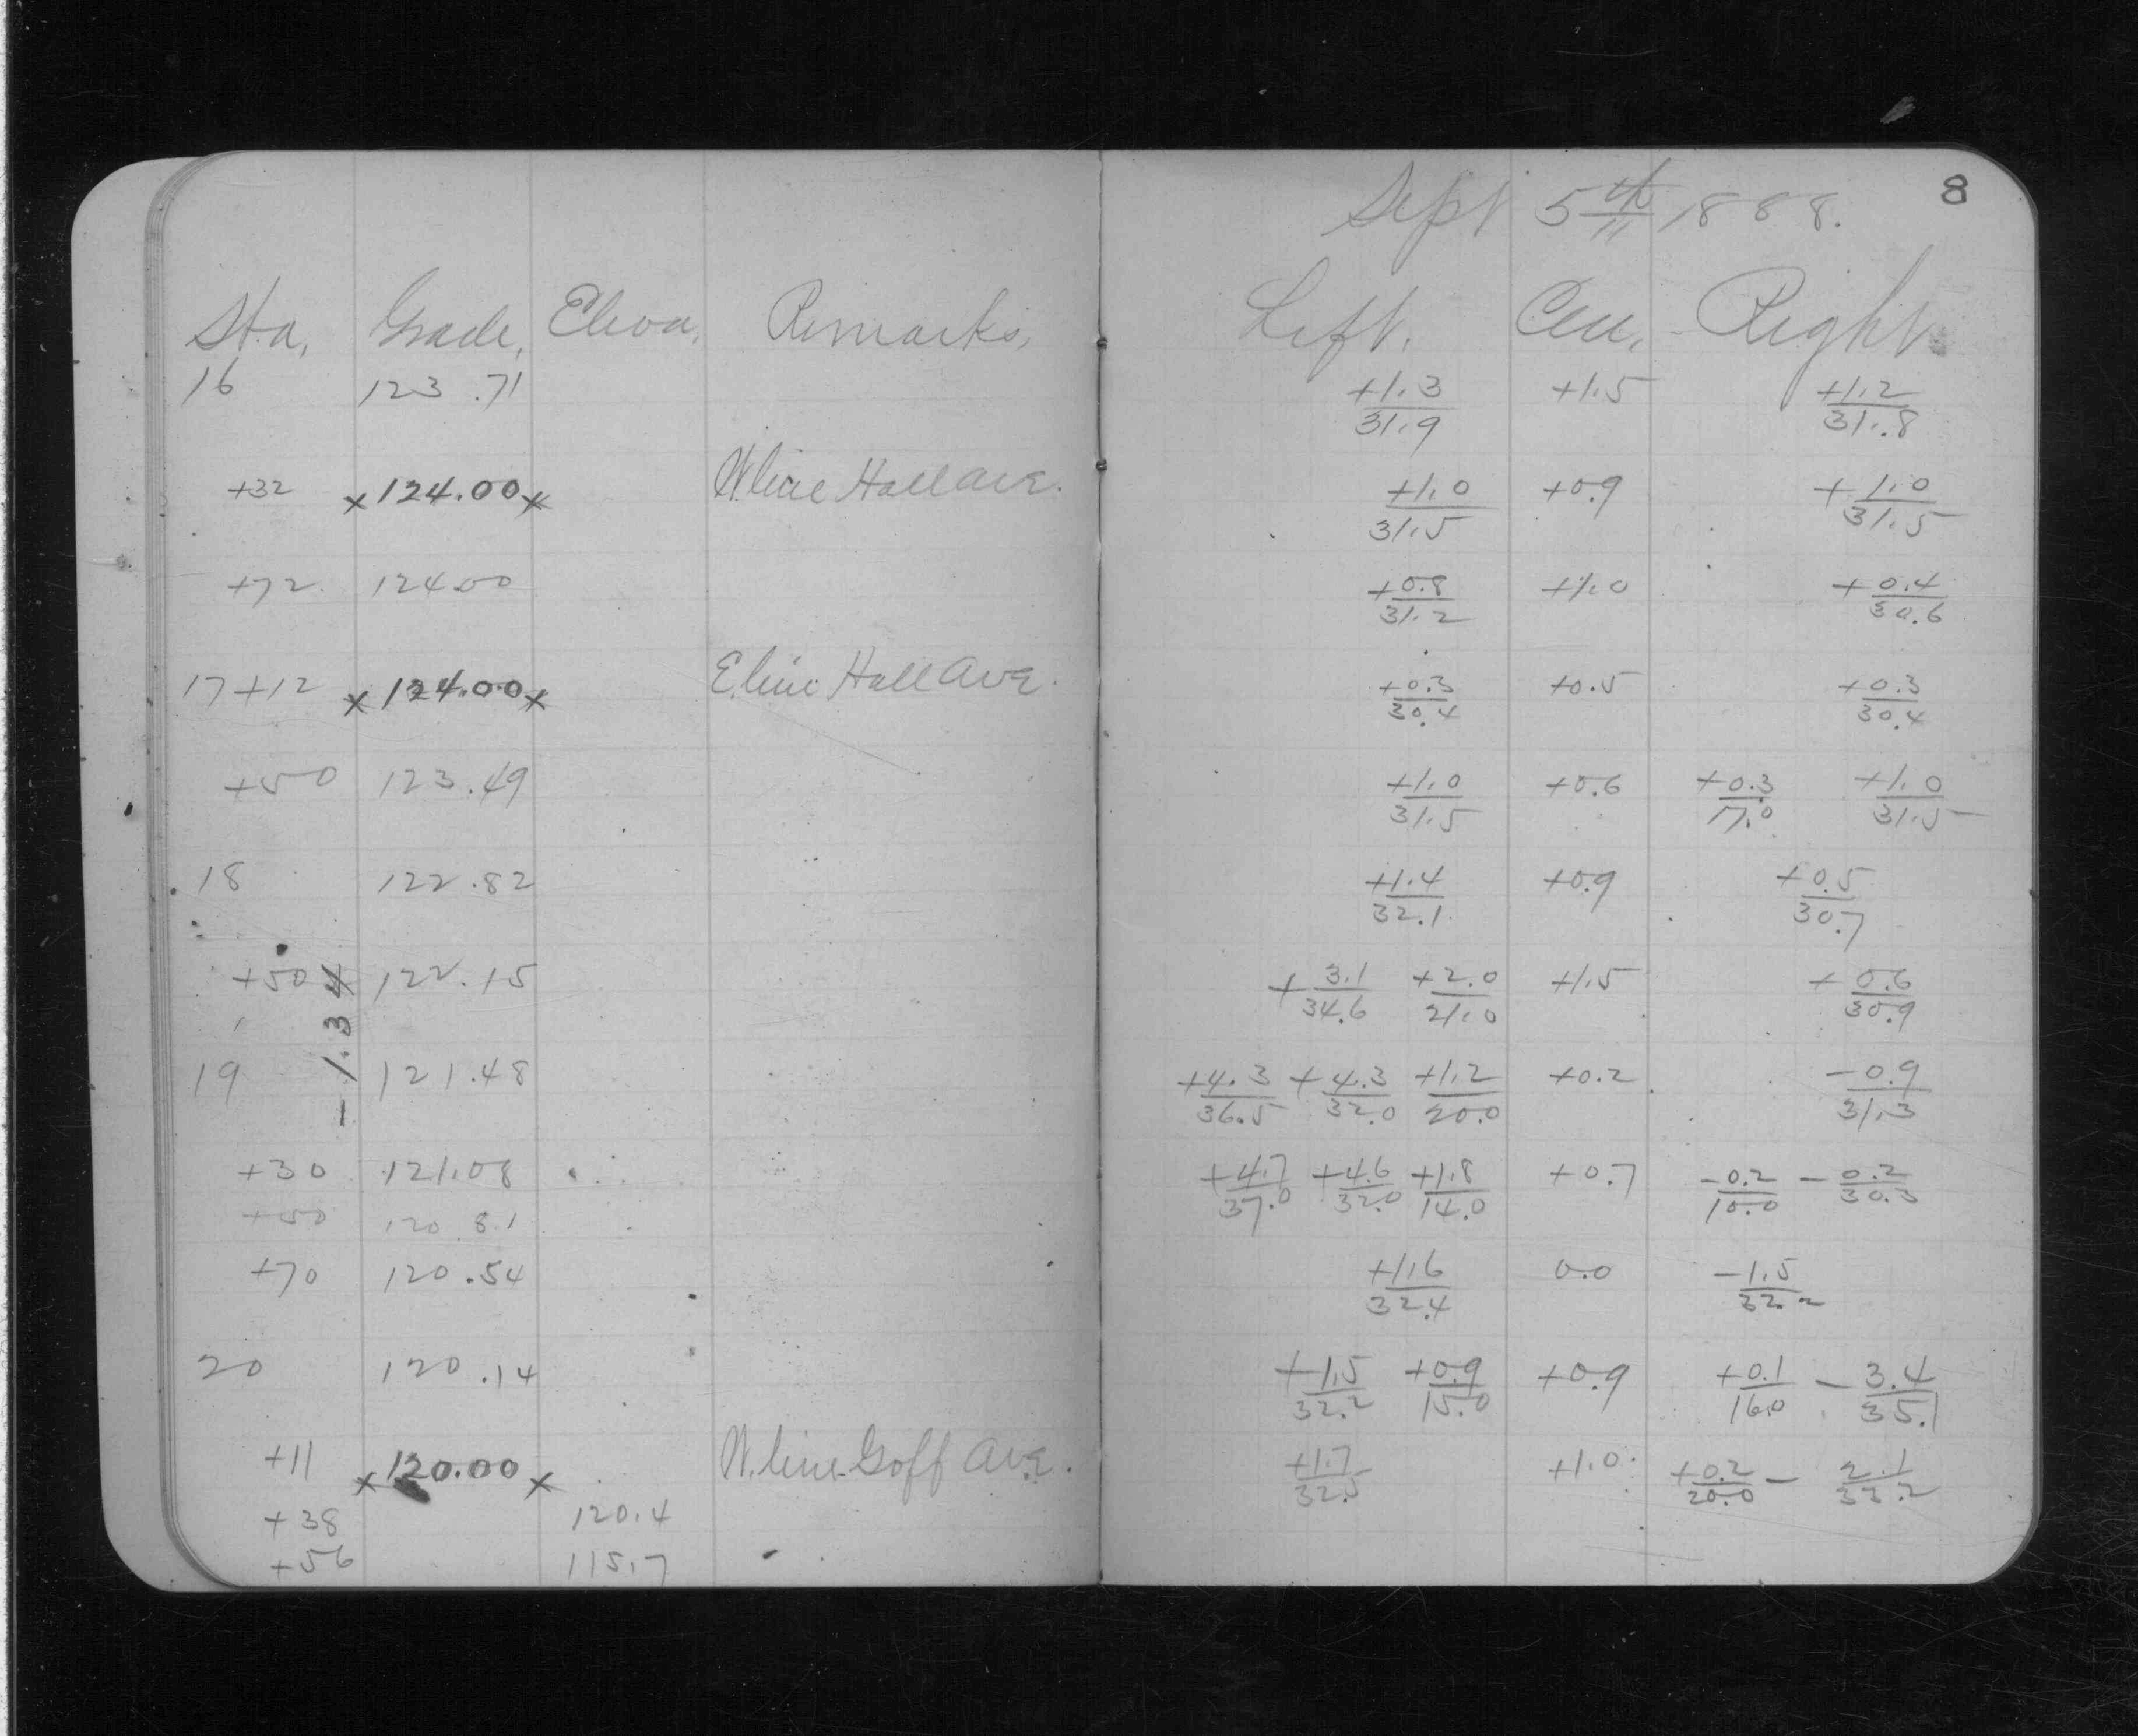 8
Sept 5th 1888.
Sta. Grade. Eleva. Remarks. Left. Cen. Right
16 123.71 +1.3/31.9 +1.5 +1.2/31.8
+32 x 124.00 x W. line Hall Ave. +1.0/31.5 +0.9 +1.0/31.5
+72 124.00 +0.8/31.2 +1.0 +0.4/30.6
17+12 x 124.00 x E. line Hall Ave. +0.3/30.4 +0.5 +0.3/30.4
+50 123.49 +1.0/31.5 +0.6 +0.3/17.0 +1.0/31.5
18 122.82 +1.4/32.1 +0.9 +0.5/30.7
+50 122.15 +3.1/34.6 +2.0/21.0 +1.5 +0.6/30.9
-1.34
19 121.48 +4.3/36.5 +4.3/32.0 +1.2/20.0 +0.2 -0.9/31.3
+30 121.08 +4.7/37.0 +4.6/32.0 +1.8/14.0 +0.7 -0.2/10.0 -0.2/30.3
+50 120.81
+70 120.54 +1.6/32.4 0.0 -1.5/32.2
20 120.14 +1.5/32.2 +0.9/15.0 +0.9 +0.1/16.0 -3.4/35.1
+11 x 120.00 x W. line Goff Ave. +1.7/32.5 +1.0 +0.2/20.0 -2.1/33.2
+38 120.4
+56 115.7